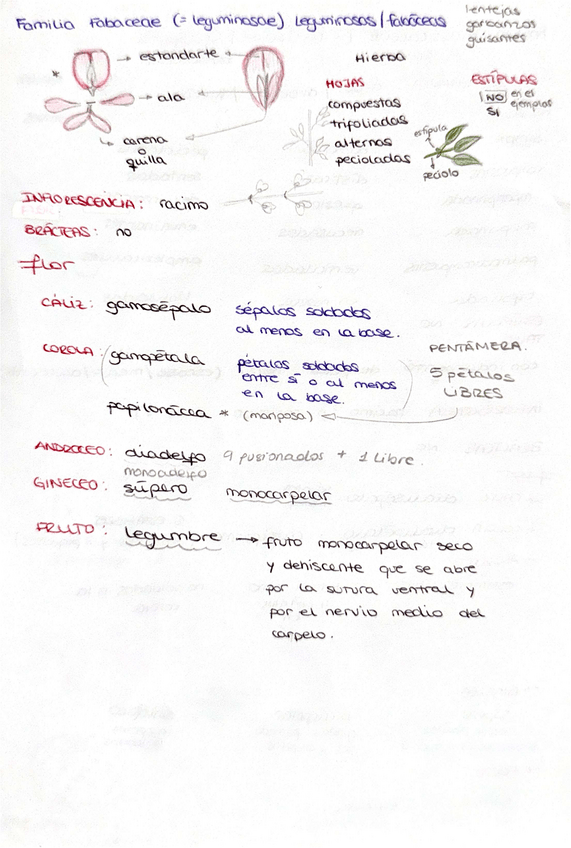 Familia Fabaceae (= leguminosae) leguminosas/fabáceas
lentejas
garbanzos
guisantes
*
estandarte
ala
carena
o
quilla
Hierba
HOJAS
compuestas
trifoliadas
alternas
pecioladas
ESTÍPULAS
NO en el
SI ejemplos
estípula
peciolo
INFLORESCENCIA: racimo
BRÁCTEAS: no
flor
CÁLIZ: gamosépalo sépalos soldados
al menos en la base.
COROLA: gamopétala pétalos soldados
entre sí o al menos
en la base.
PENTÁMERA.
5 pétalos
LIBRES
papilonácea * (mariposa)
ANDROCEO: diadelfo 9 fusionados + 1 libre.
monoadelfo
GINECEO: súpero monocarpelar
FRUTO: legumbre → fruto monocarpelar seco
y dehiscente que se abre
por la sutura ventral y
por el nervio medio del
carpelo.